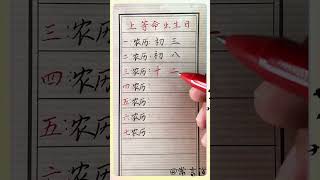 上等命出生日
一农历:初三
二农历:初八
三农历:十二
四农历
五农历
六农历
七农历
三:农历
四:农历
五:农历
六:农历